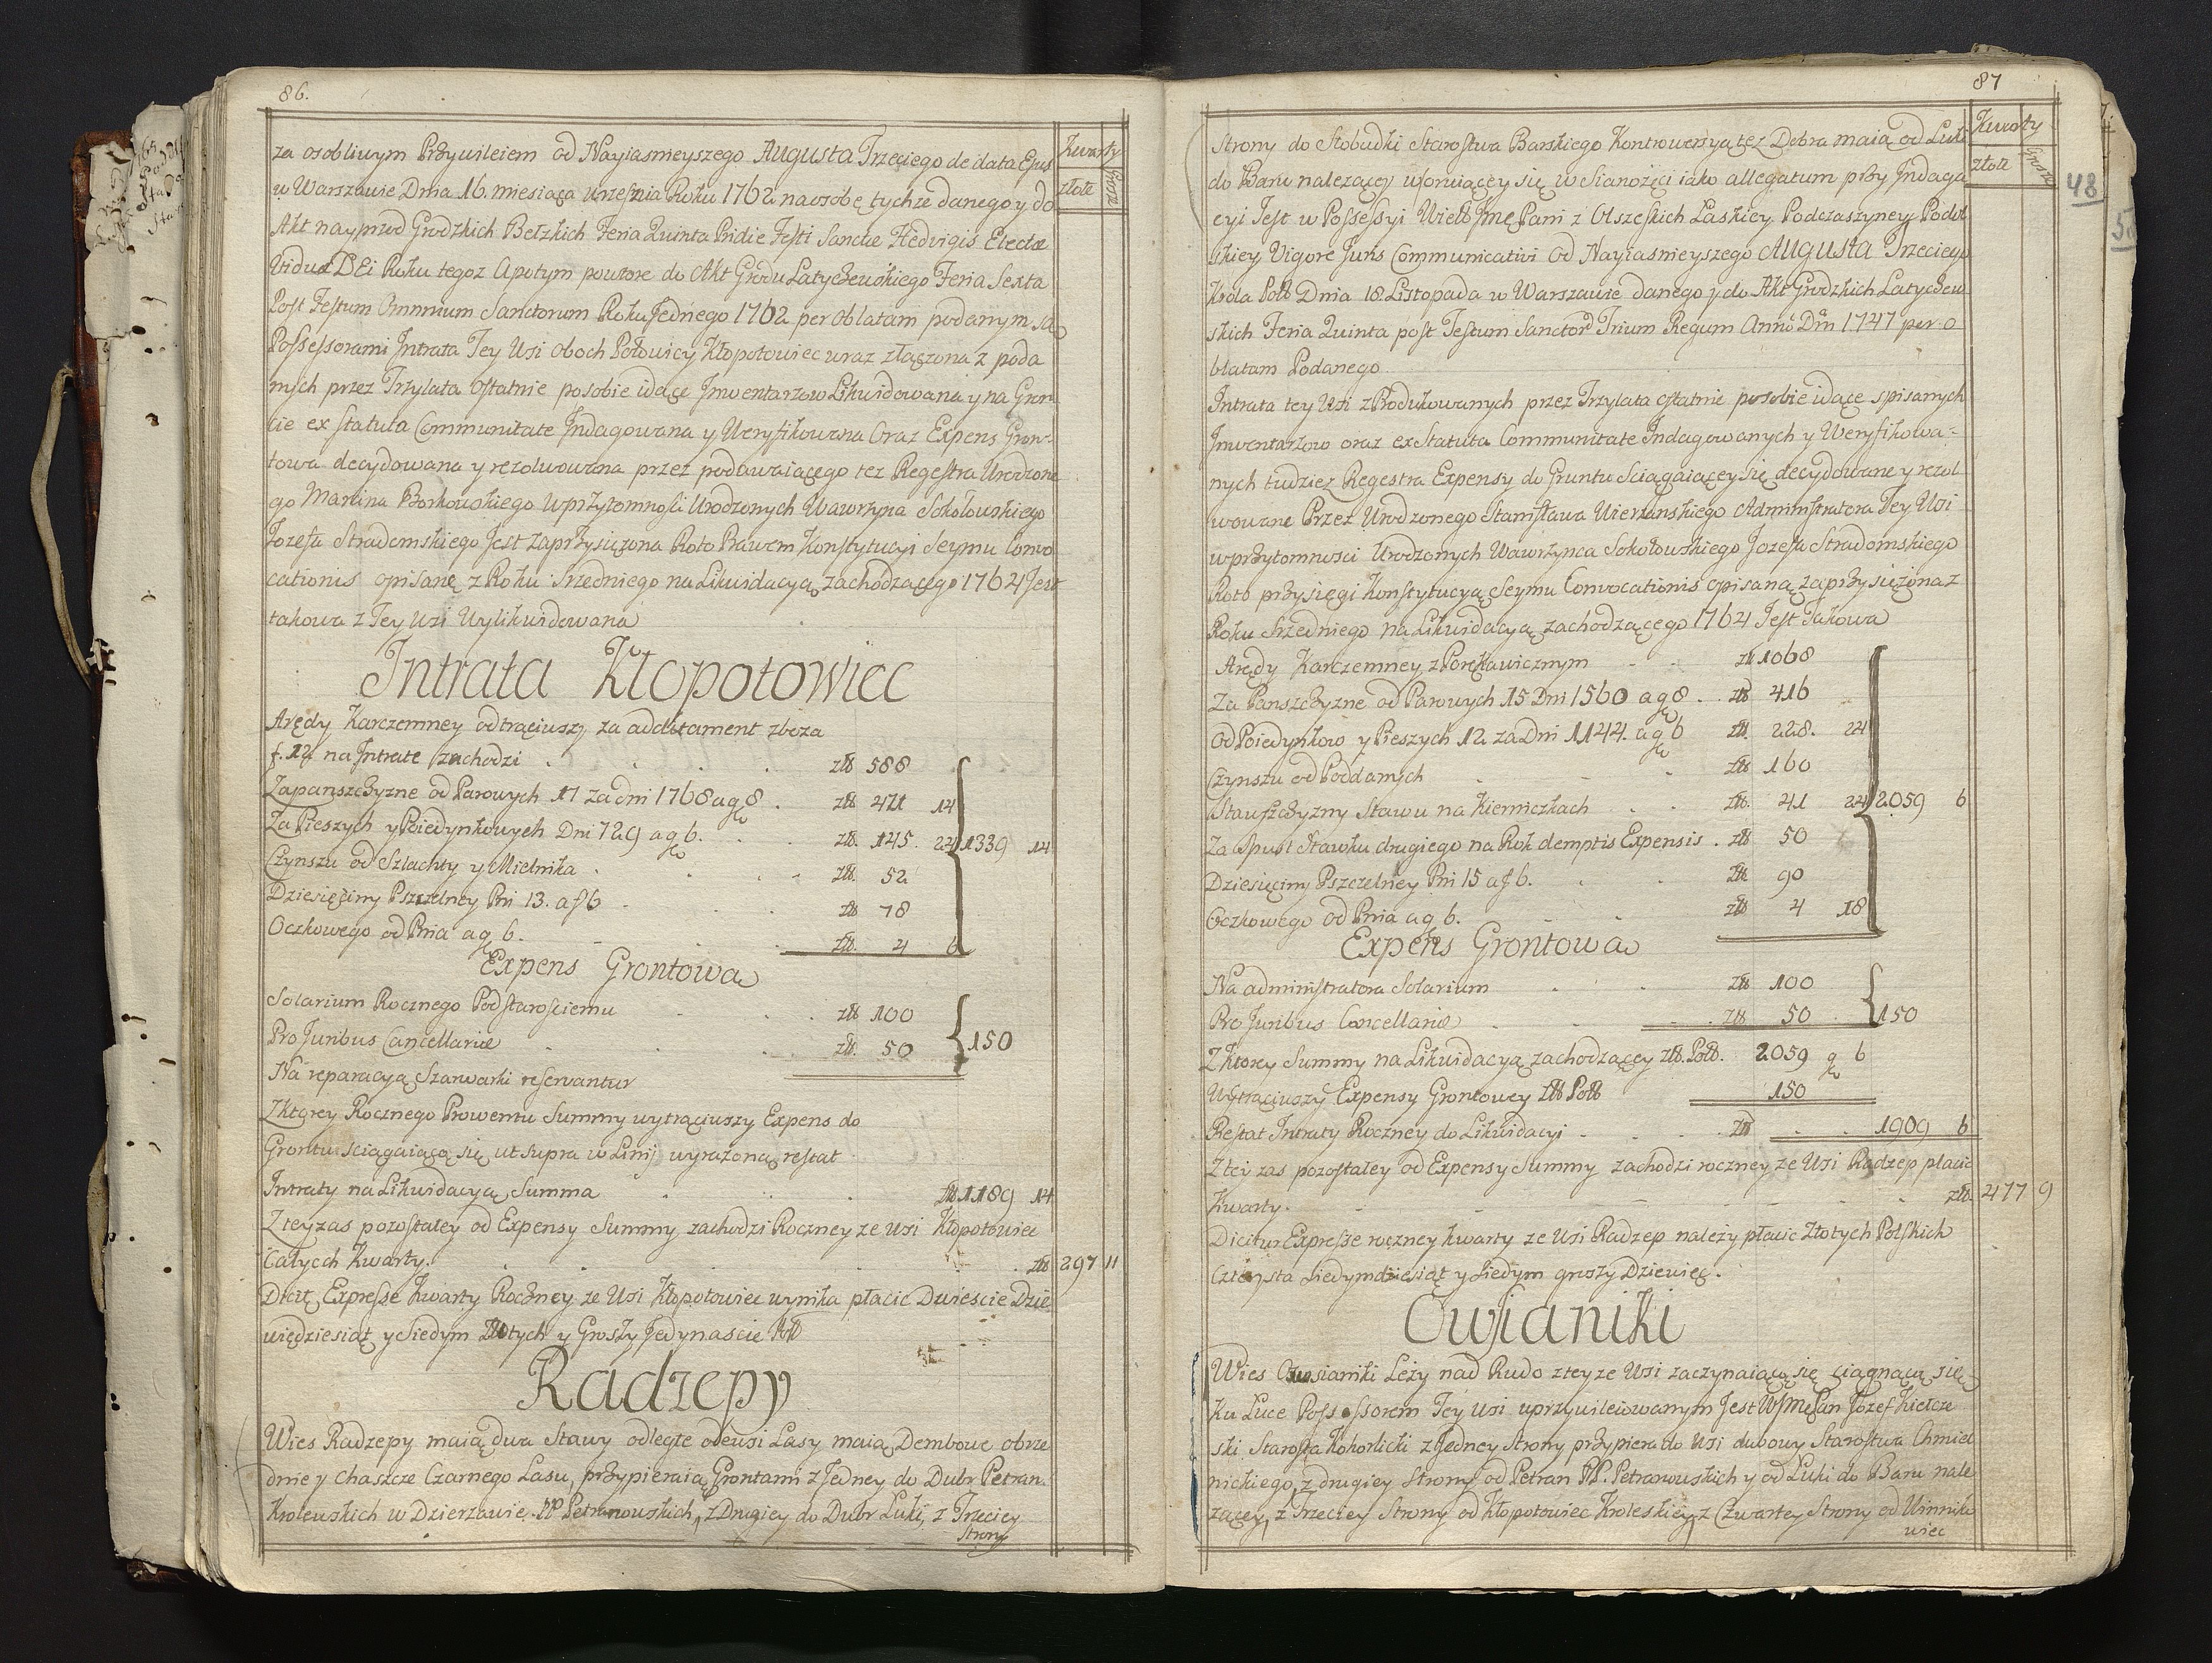 86.
Kwarty
złote Grosze
za osobliwym Przywileiem od Nayiasnieyszego Augusta Trzeciego de data Ejus
w Warszawie Dnia 16. miesiąca Wrzesnia Roku 1762 na osobę tychże danego y do
Akt nayprzod Grodzkich Bełzkich Feria Quinta Pridie Festi Sanctæ Hedvigis Electæ
Viduæ DEi Roku tegoz a potym powtore do Akt Grodu Latyczewskiego Feria Sexta
Post Festum Omnium Sanctorum Roku Jednego 1762 per oblatam podanym są
Possessorami Intrata Tey Wsi oboch Połowicy Kłopotowiec wraz złączona z poda
nych przez Trzylata ostatnie po sobie idące Jnwentarzow Likwidowana y na Gron
cie ex statuta Communitate Jndagowana y Weryfikowana Oraz Expens Gron-
towa decydowana y rezolwowana przez podawaiącego tez Regestra Urodzone
go Marcina Borkowskiego w przytomnosci Urodzonych Wawrzynca Sokołowskiego
Jozefa Stradomskiego Jest zaprzysiężona Roto Prawem Konstytucyi Seymu Convo
cationis opisane z Roku Srzedniego na Likwidacyą zachodzącego 1764 Jest
takowa z Tey Wsi Wylikwidowana
Intrata Kłopotowiec
Arędy Karczemney odtrąciwszy za addittament zboza
f. 12 na Jntrate zachodzi . . . . złł 588
Za panszczyzne od Parowych 17 za dni 1768 a gł 8 . złł 471 14
Za Pieszych y Poiedynkowych Dni 729 a gł 6. . złł. 145. 24 1339 14
Czynszu od Szlachty y Mielnika . . . złł. 52
Dziesięciny Pszczelney Pni 13. a f 6 . . . złł 78
Oczkowego od Pnia a gł 6. . . . złł. 4 6
Expens Grontowa
Solarium Rocznego Podstarosciemu . . złł 100
Pro Juribus Cancellariæ . . . złł. 50 150
Na reparacyą Szarwarki reservantur
Z Ktorey Rocznego Prowentu Summy wytrąciwszy Expens do
Grontu sciągaiącą się ut supra w Linij wyrazoną restat
Intraty na Likwidacyą Summa . . . złł 1189 14
Z tey zas pozostałey od Expensy Summy zachodzi Roczney ze Wsi Kłopotowiec
Całych Kwarty. . . . . . złł 297 11
Dicit Expresse Kwarty Roczney ze Wsi Kłopotowiec wynika płacic Dwiescie Dzie
więdziesiąt y Siedym Złłotych y Groszy Jedynascie Poll
Radzepy
Wies Radzepy maią dwa Stawy odległe od wsi Lasy maią Dembowe obrze
dnie y chaszcze Czarnego Lasu, przypieraią Grontami z Jedney do Dubr Petran.
Krolewskich w Dzierzawie PP Petranowskich, z Drugiey do Dubr Luki, z Trzeciey
Strony
87
Kwarty
złote Grosze
48
Strony do Słobudki Starostwa Barskiego Kontrowersyą tez Dobra maią od Luki
do Baru nalezącey worwiącey się w Sianozęci iako allegatum przy Jndaga
cyi Jest w Possessyi Wielb Jmę Pani z Olszeskich Laskiey Podczaszyney Podol
skiey Vigore Juris Communicativi od Nayiasnieyszego Augusta Trzeciego
Krola Poll Dnia 18. Listopada w Warszawie danego y do Akt Grodzkich Latyczew
skich Feria Quinta post Festum Sanctor Trium Regum Anno Dni 1747 per o
blatam Podanego
Intrata tey Wsi z Produkowanych przez Trzylata ostatnie po sobie idące spisanych
Jnwentarzow oraz ex Statuta Communitate Jndagowanych y Weryfikowa-
nych tudziez Regestra Expensy do Gruntu Sciągaiącey się decydowane y rezol
wowane Przez Urodzonego Stanisława Wierzanskiego Administratora Tey Wsi
w przytomnosci Urodzonych Wawrzynca Sokołowskiego Jozefa Stradomskiego
Roto przysięgi Konstytucyą Seymu Convocationis opisaną zaprzysiężona z
Roku Srzedniego na Likwidacyą zachodzącego 1764 Jest Takowa
Arędy Karczemney z Porękawicznym . . złł 1068
Za Panszczyzne od Parowych 15 Dni 1560 a gł 8 . . złł 416
Od Poiedynkow y Pieszych 12 za Dni 1144. a gł 6 złł. 228. 24
Czynszu od Poddanych . . . złł 160
Stawszczyzny Stawu na Kierniczkach . . złł. 41 24 2059 6
Za Spust Stawku drugiego na Rok demptis Expensis . złł 50
Dziesięciny Pszczelney Pni 15 a f 6. . . złł 90
Oczkowego od Pnia a g 6. . . złł 4 18
Expens Grontowa
Na administratora Solarium . . złł 100
Pro Juribus Cancellariæ . . . złł 50 150
Z Ktorey Summy na Likwidacyą zachodzącey złł. Poll. 2059 gł 6
Wytrąciwszy Expensy Grontowey złł Poll 150
Restat Intraty Roczney do Likwidacyi . . . złł . . 1909 6
Z tei zas pozostałey od Expensy Summy zachodzi roczney ze Wsi Radzep płacic
Kwarty. . . . złł. 477 9
Dicitur Expresse roczney kwarty ze Wsi Radzep należy płacic Złotych Polskich
Czterysta Siedymdziesiąt y Siedym groszy Dziewięć.
Owsianiki
Wies Owsianiki Leży nad Rudo z teyze Wsi zaczynaiącą się ciągnącą się
Ku Luce Possessorem Tey Wsi uprzywileiowanym Jest WJmę Pan Jozef Kiełcze
ski Starosta Kohorlicki z Jedney Strony przypiera do Wsi dubowy Starostwa Chmiel
nickiego, z drugiey Strony od Petran PP. Petranowskich y od Luki do Baru nale
zącey, z Trzeciey Strony od Kłopotowiec Kroleskiey, z Czwartey Strony od Winniko
wiec